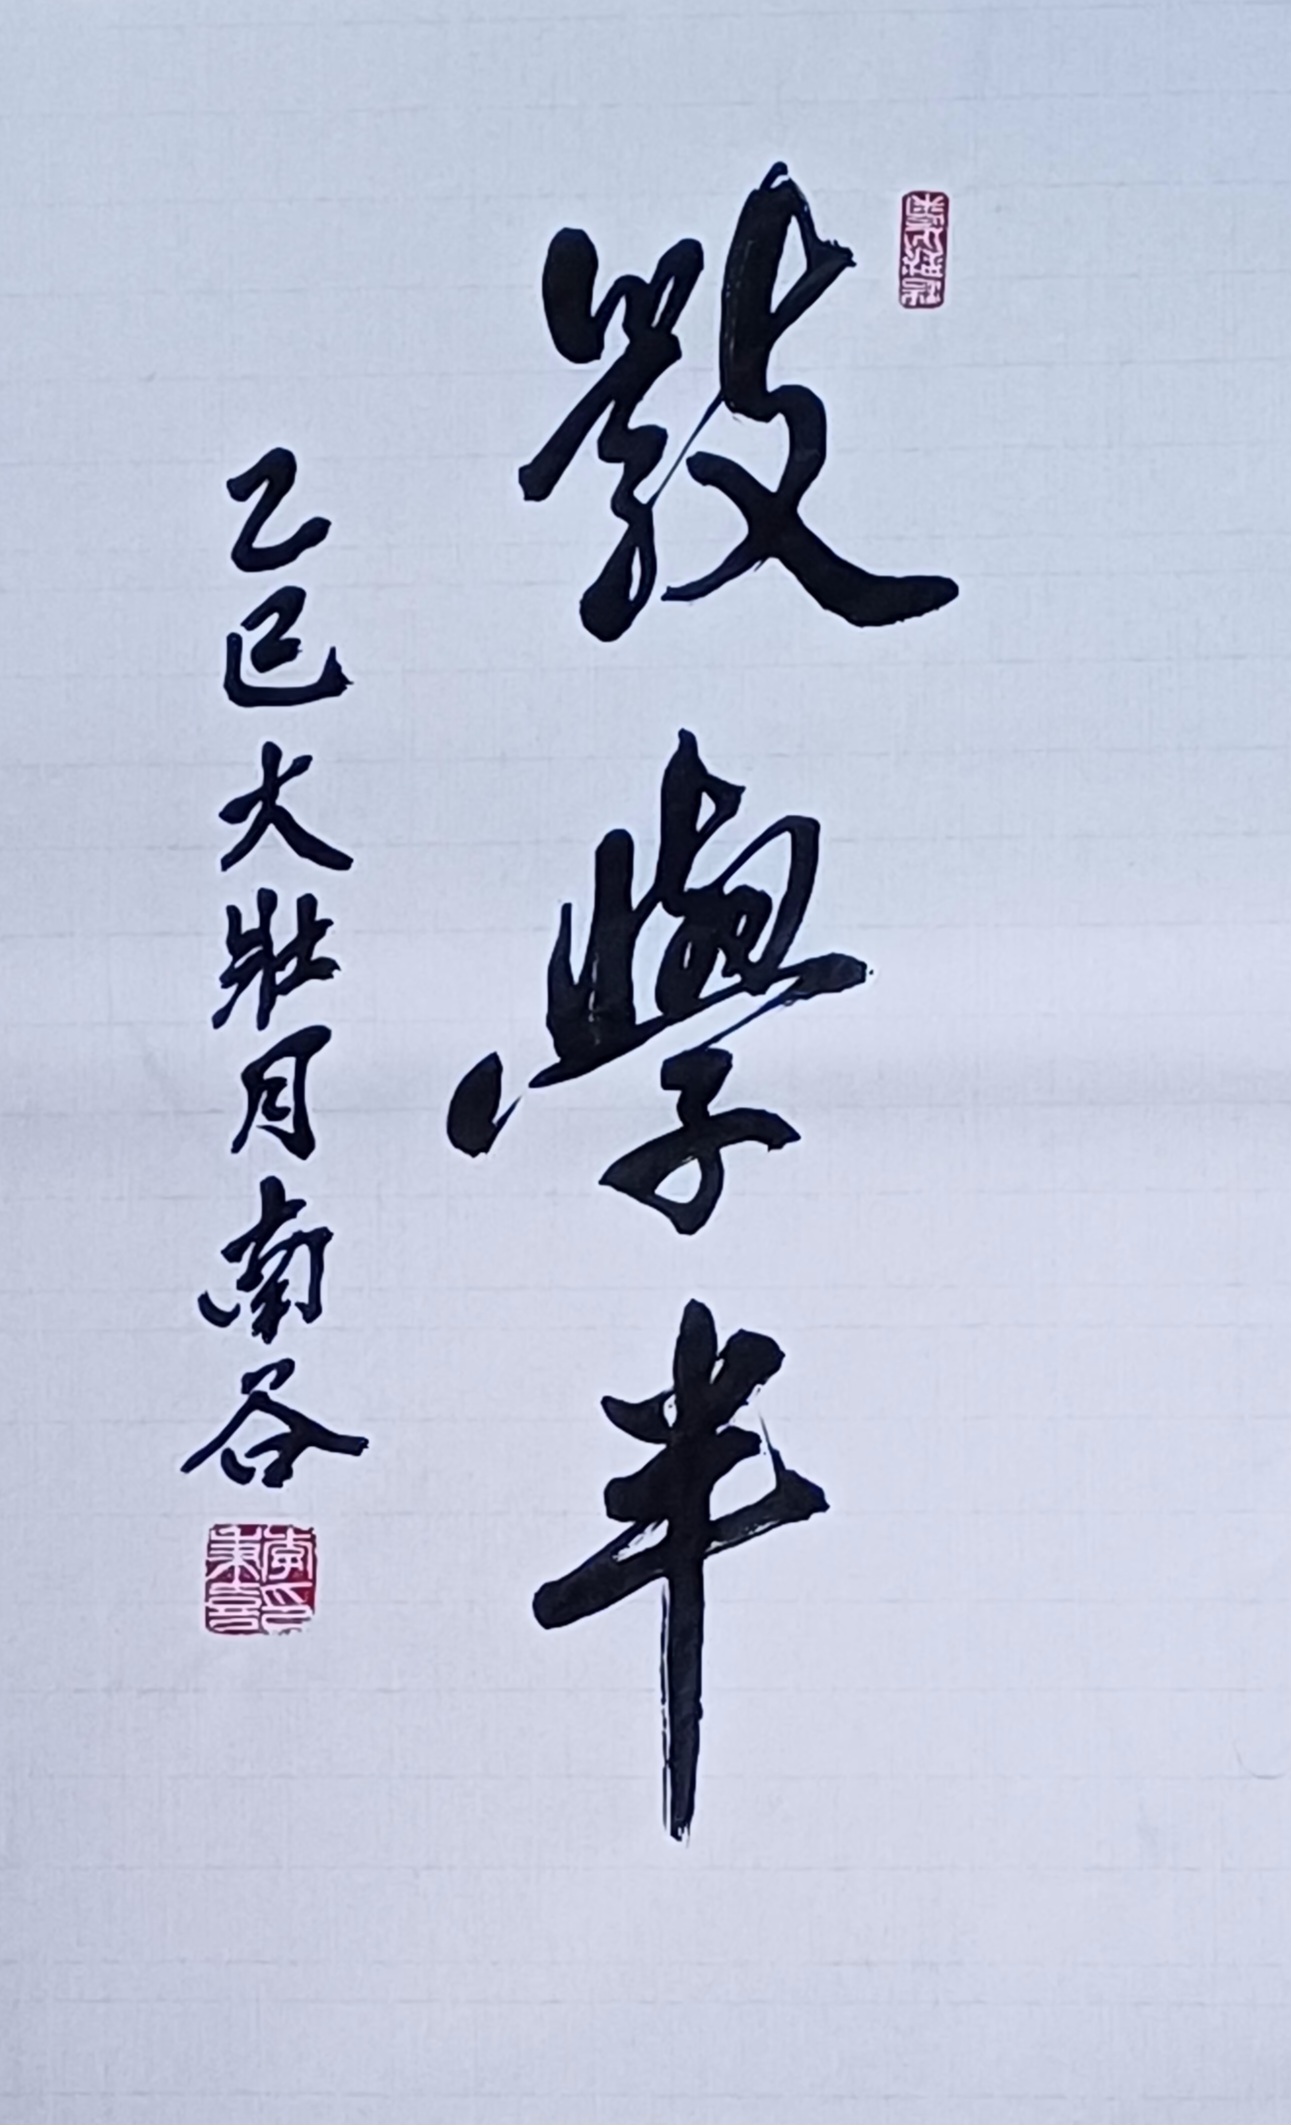 敎學半
乙巳大壯月南谷